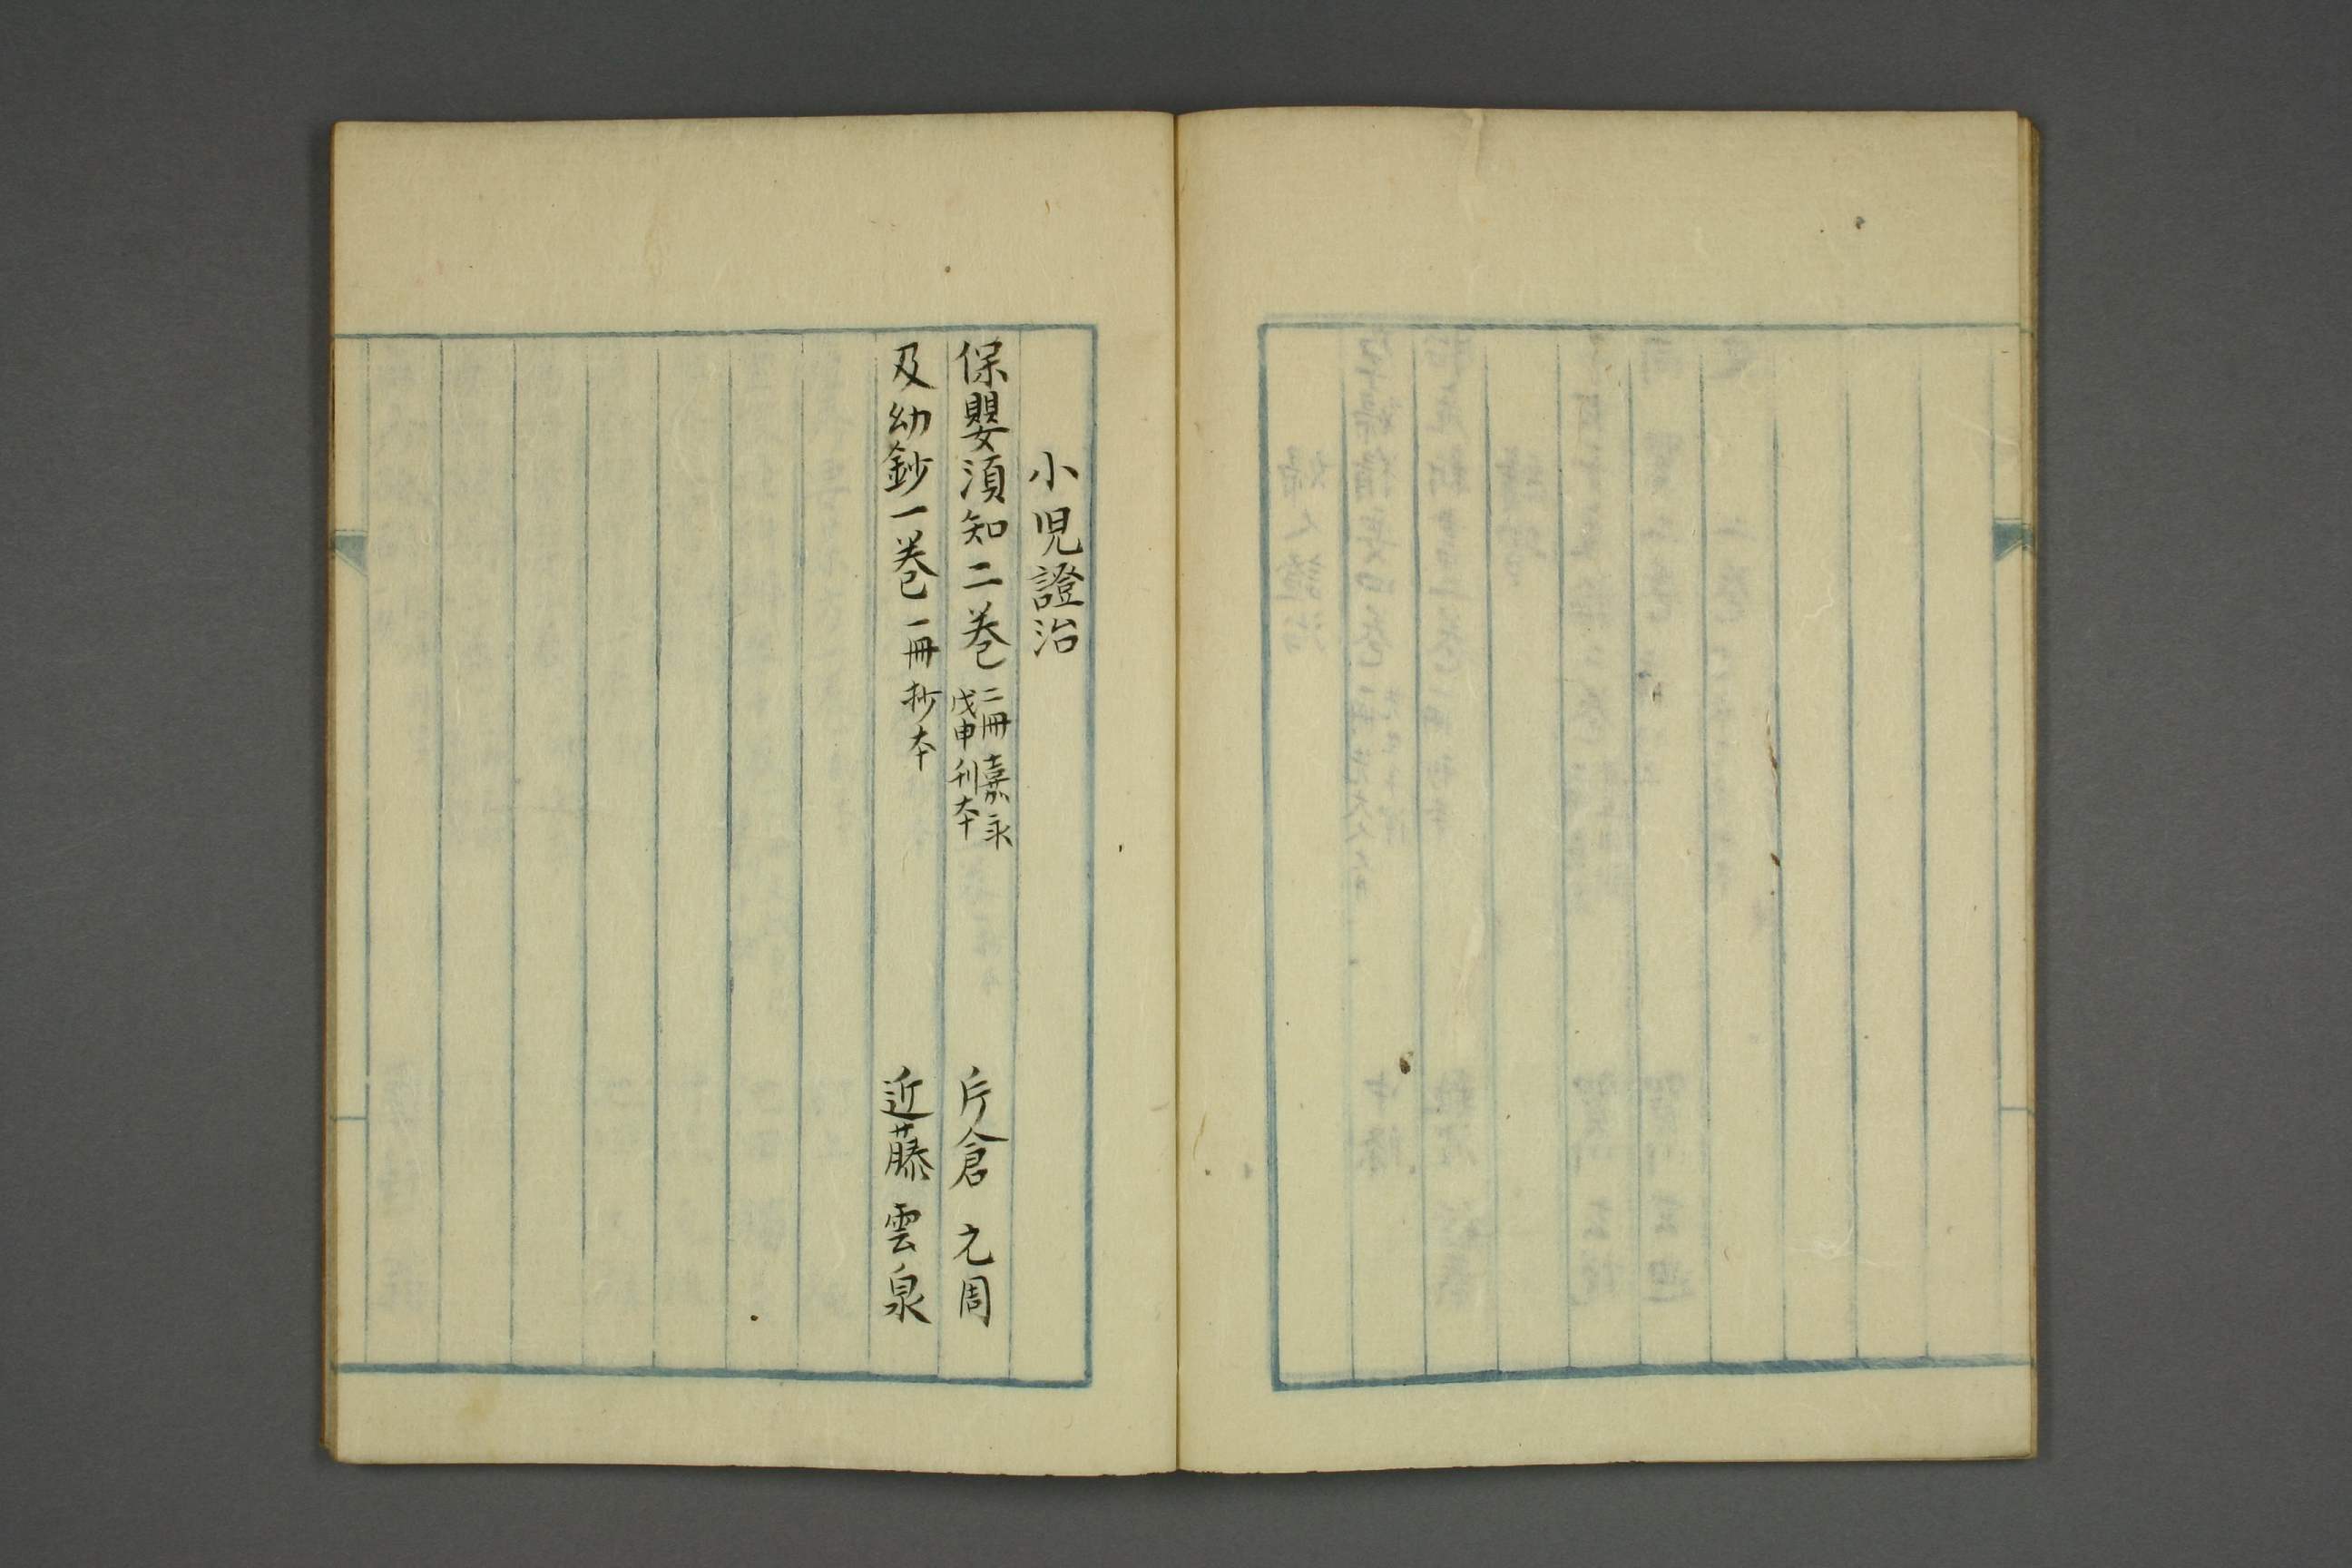 小児證治
保嬰須知二巻 二冊 嘉永 戊申刊本 片倉 元周
及幼鈔一巻 一冊 抄本 近藤 雲泉